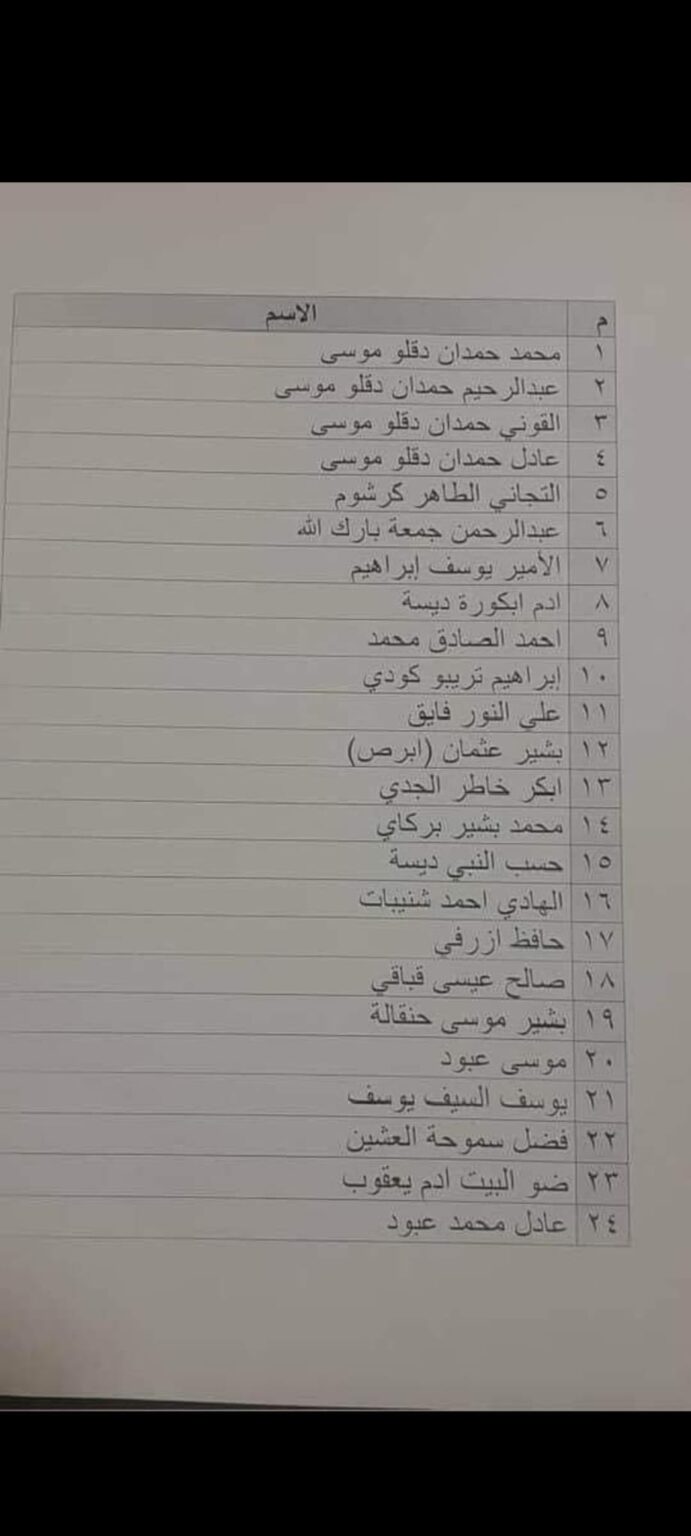 م الاسم
١ محمد حمدان دقلو موسى
٢ عبدالرحيم حمدان دقلو موسى
٣ القوني حمدان دقلو موسى
٤ عادل حمدان دقلو موسى
٥ التجاني الطاهر كرشوم
٦ عبدالرحمن جمعة بارك الله
٧ الأمير يوسف إبراهيم
٨ ادم ابكورة ديسة
٩ احمد الصادق محمد
١٠ إبراهيم تريبو كودي
١١ علي النور فايق
١٢ بشير عثمان (ابرص)
١٣ ابكر خاطر الجدي
١٤ محمد بشير بركاي
١٥ حسب النبي ديسة
١٦ الهادي احمد شنيبات
١٧ حافظ ازرفي
١٨ صالح عيسى قباقي
١٩ بشير موسى حنقالة
٢٠ موسى عبود
٢١ يوسف السيف يوسف
٢٢ فضل سموحة العشين
٢٣ ضو البيت ادم يعقوب
٢٤ عادل محمد عبود